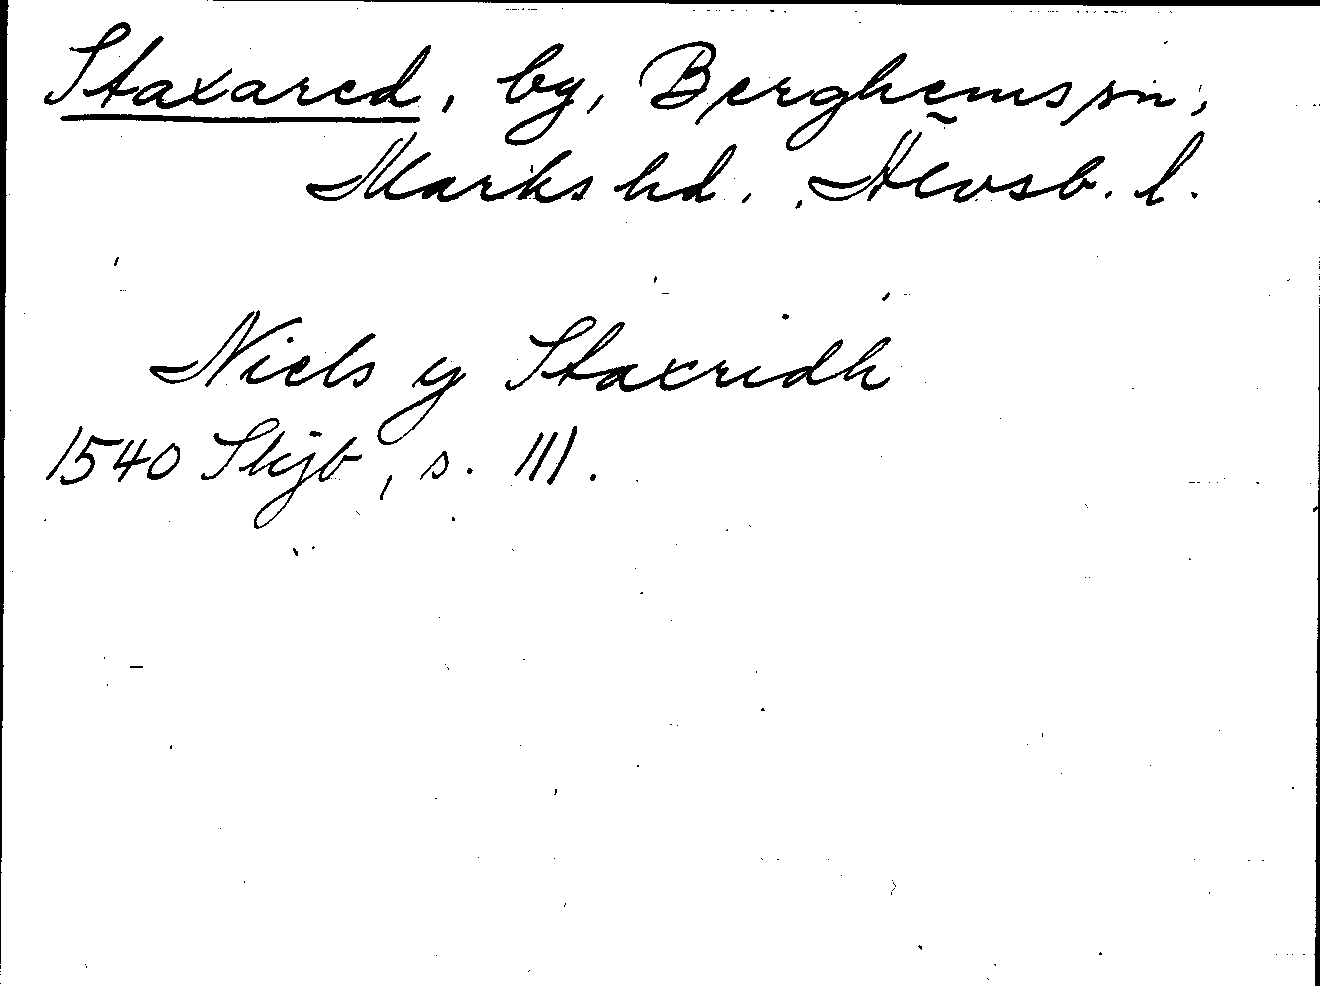 Staxared, by, Berghems sn,
Marks hd., Älvsb. l.
Niels y Staxridh
1540 Skjb, s. 111.